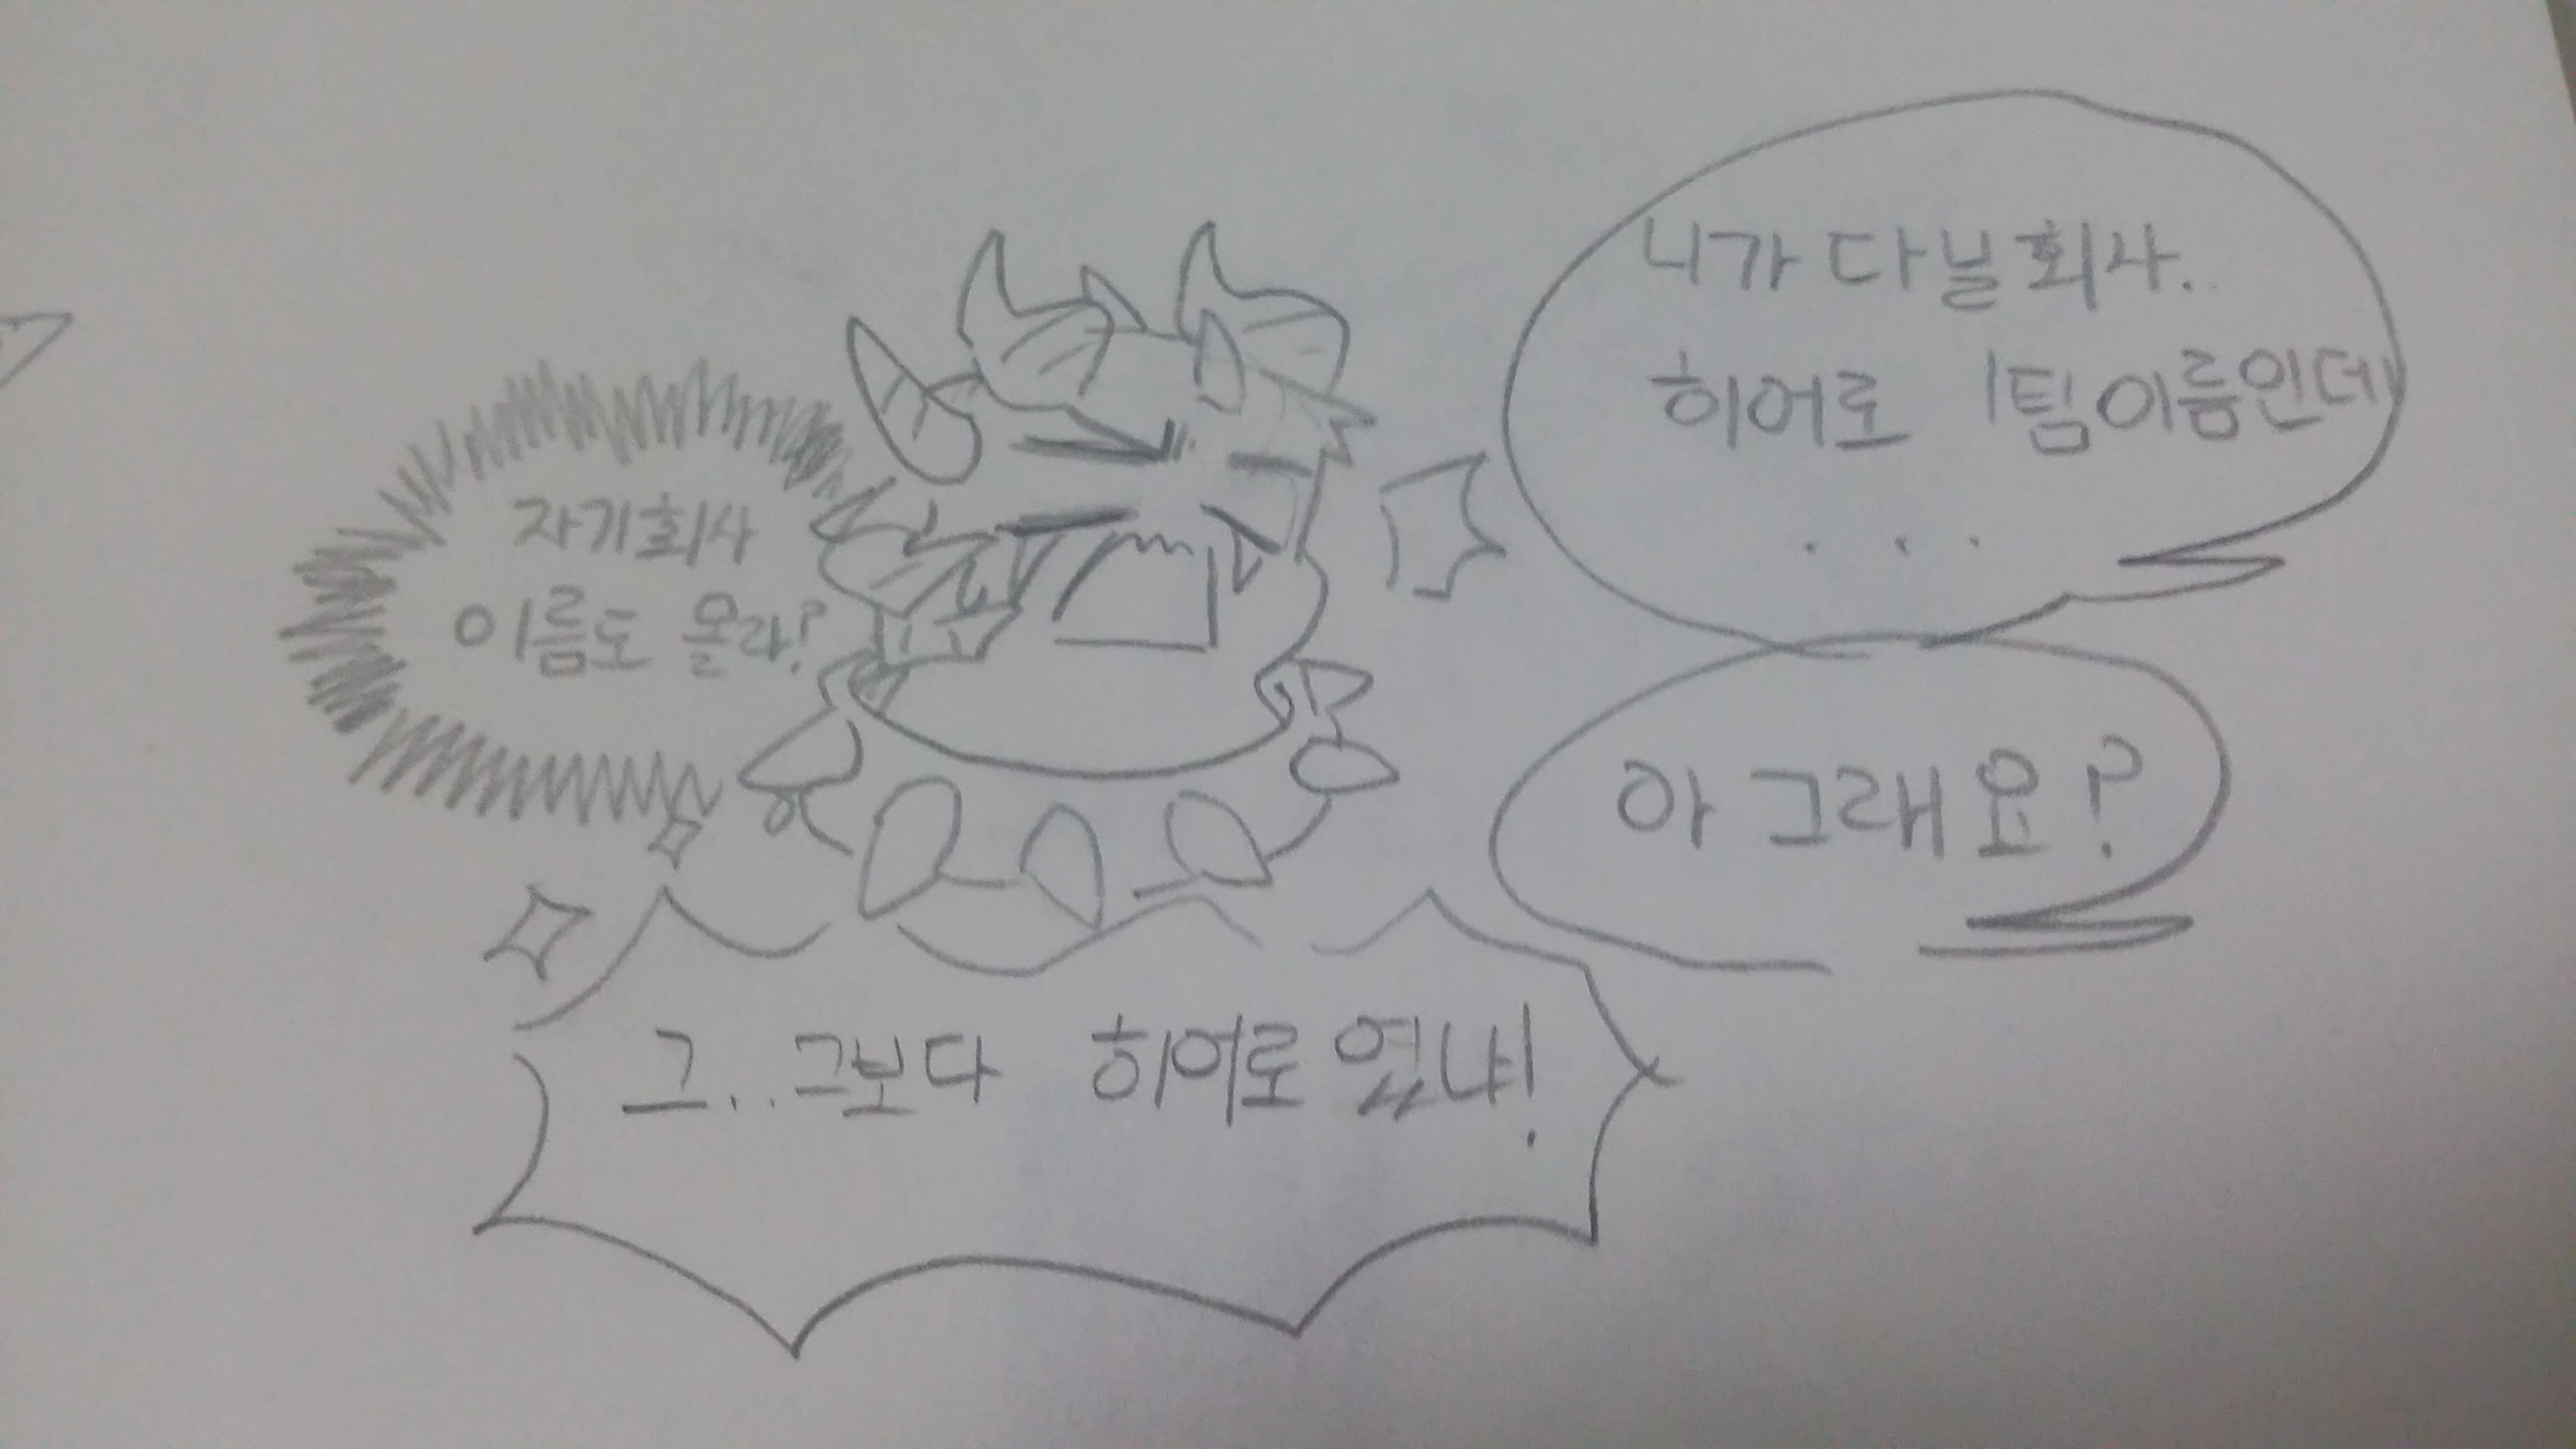 니가 다닐 회사..
히어로 1팀이름인데
...
아 그래요?
자기회사
이름도 몰라?
그..그보다 히어로 없냐!